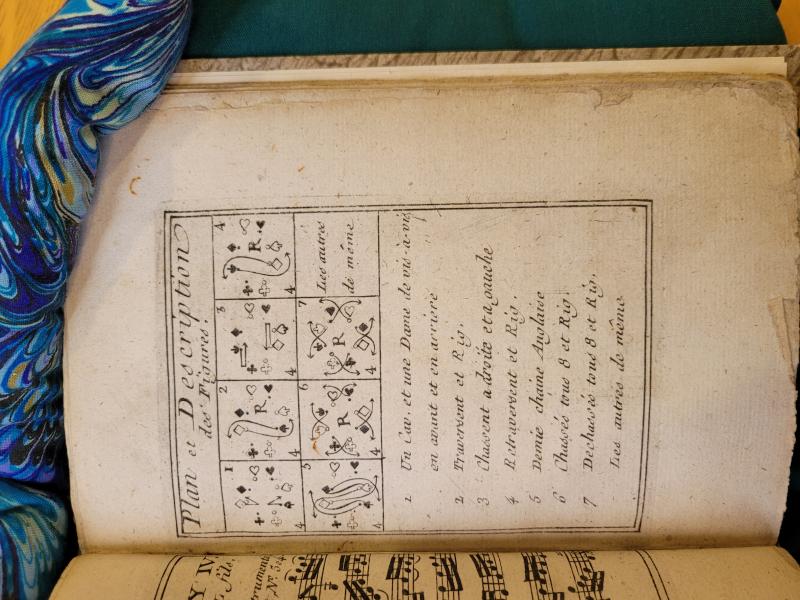 Plan et Description
des Figures.
1
2
3
4
R
R
4
4
4
4
5
6
7
Les autrés
de même
R
R
4
4
4
1 Un Cav. et une Dame de vis-à-vis
en avant et en arriere
2 Traversent et Rig.
3 Chassent a droite et a gauche
4 Retraversent et Rig.
5 Demie chaine Anglaise
6 Chassés tous 8 et Rig.
7 Dechassés tous 8 et Rig.
Les autres de même
Fils.
Nº.